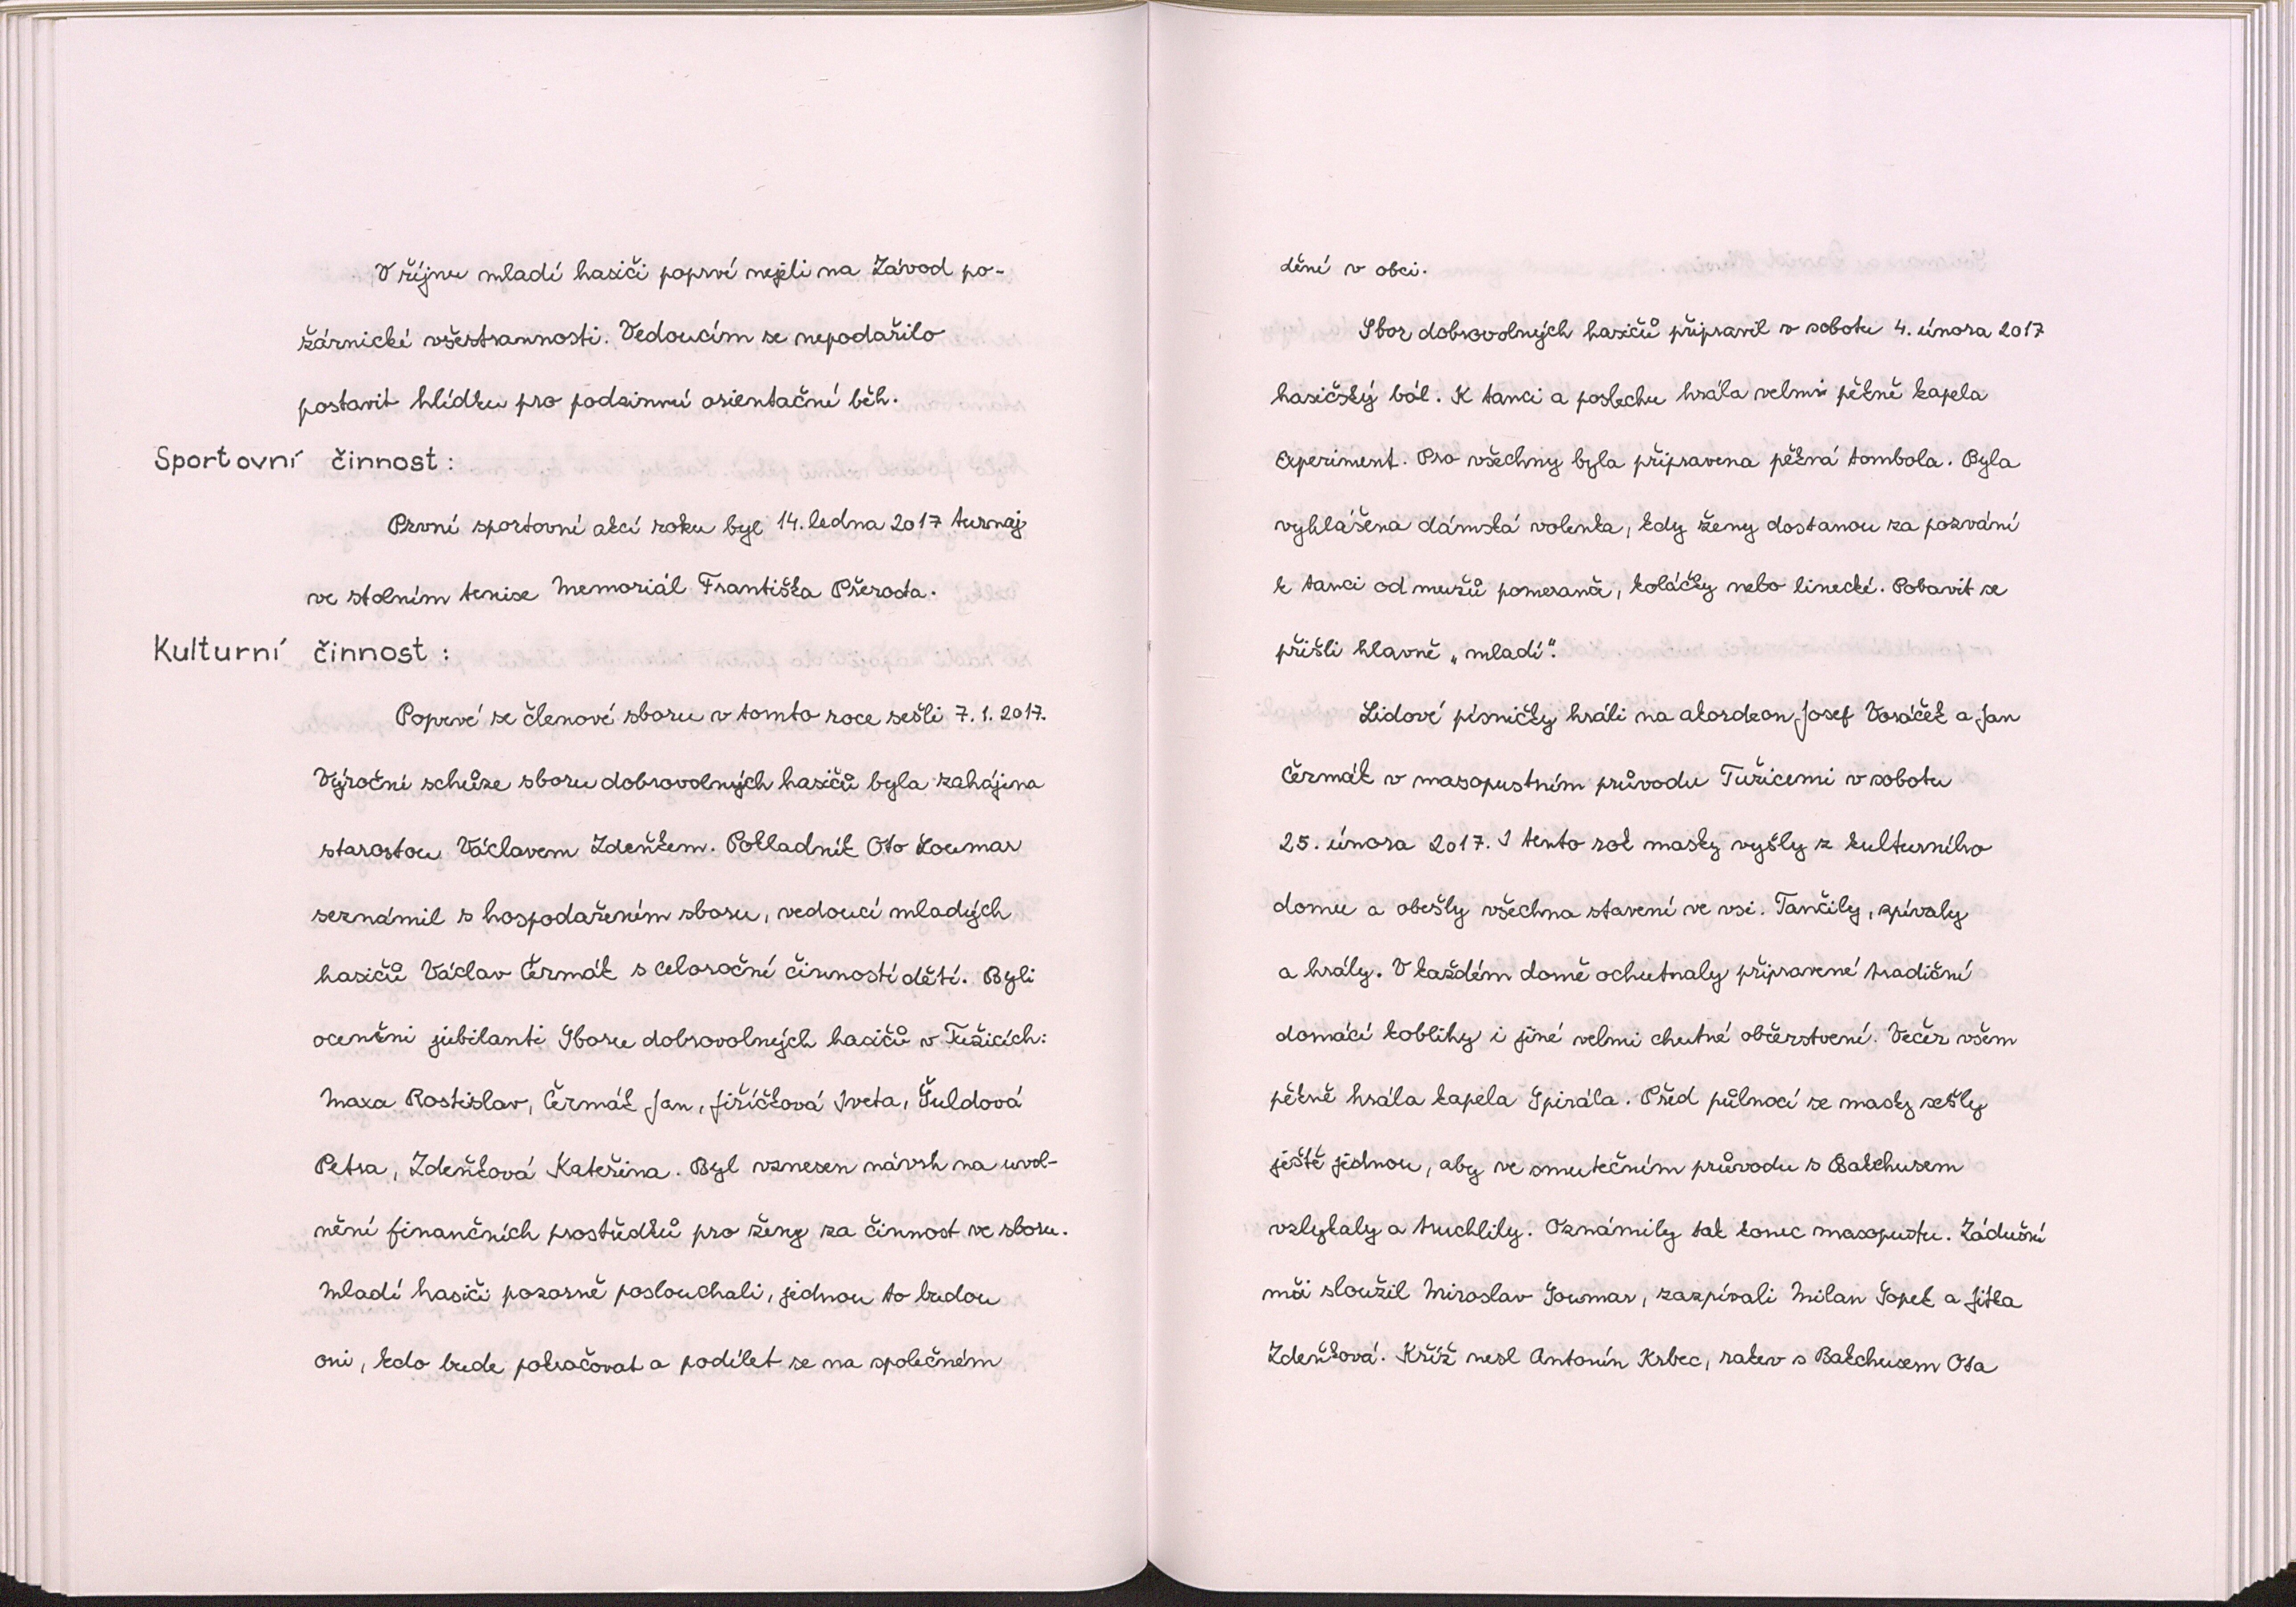 V říjnu mladí hasiči poprvé nejeli na Závod po-
žárnické všestrannosti. Vedoucím se nepodařilo
postavit hlídku pro podzimní orientační běh.
Sportovní činnost:
První sportovní akcí roku byl 14. ledna 2017 turnaj
ve stolním tenise Memoriál Františka Přerosta.
Kulturní činnost:
Poprvé se členové sboru v tomto roce sešli 7. 1. 2017.
Výroční schůze sboru dobrovolných hasičů byla zahájena
starostou Václavem Zdeňkem. Pokladník Oto Soumar
seznámil s hospodařením sboru, vedoucí mladých
hasičů Václav Čermák s celoroční činností dětí. Byli
oceněni jubilanti Sboru dobrovolných hasičů v Tužicích:
Maxa Rostislav, Čermák Jan, Jiříčková Iveta, Šuldová
Petra, Zdeňková Kateřina. Byl vznesen návrh na uvol-
nění finančních prostředků pro ženy za činnost ve sboru.
Mladí hasiči pozorně poslouchali, jednou to budou
oni, kdo bude pokračovat a podílet se na společném
dění v obci.
Sbor dobrovolných hasičů připravil v sobotu 4. února 2017
hasičský bál. K tanci a poslechu hrála velmi pěkně kapela
Experiment. Pro všechny byla připravena pěkná tombola. Byla
vyhlášena dámská volenka, kdy ženy dostanou za pozvání
k tanci od mužů pomeranč, koláčky nebo linecké. Pobavit se
přišli hlavně „mladí“.
Lidové písničky hráli na akordeon Josef Voráček a Jan
Čermák v masopustním průvodu Tužicemi v sobotu
25. února 2017. I tento rok masky vyšly z kulturního
domu a obešly všechna stavení ve vsi. Tančily, zpívaly
a hrály. V každém domě ochutnaly připravené tradiční
domácí koblihy i jiné velmi chutné občerstvení. Večer všem
pěkně hrála kapela Spirála. Před půlnocí se masky sešly
ještě jednou, aby ve smutečním průvodu s Bakchusem
vzlykaly a truchlily. Oznámily tak konec masopustu. Zádušní
mši sloužil Miroslav Soumar, zazpívali Milan Sopek a Jitka
Zdeňková. Kříž nesl Antonín Krbec, rakev s Bakchusem Ota